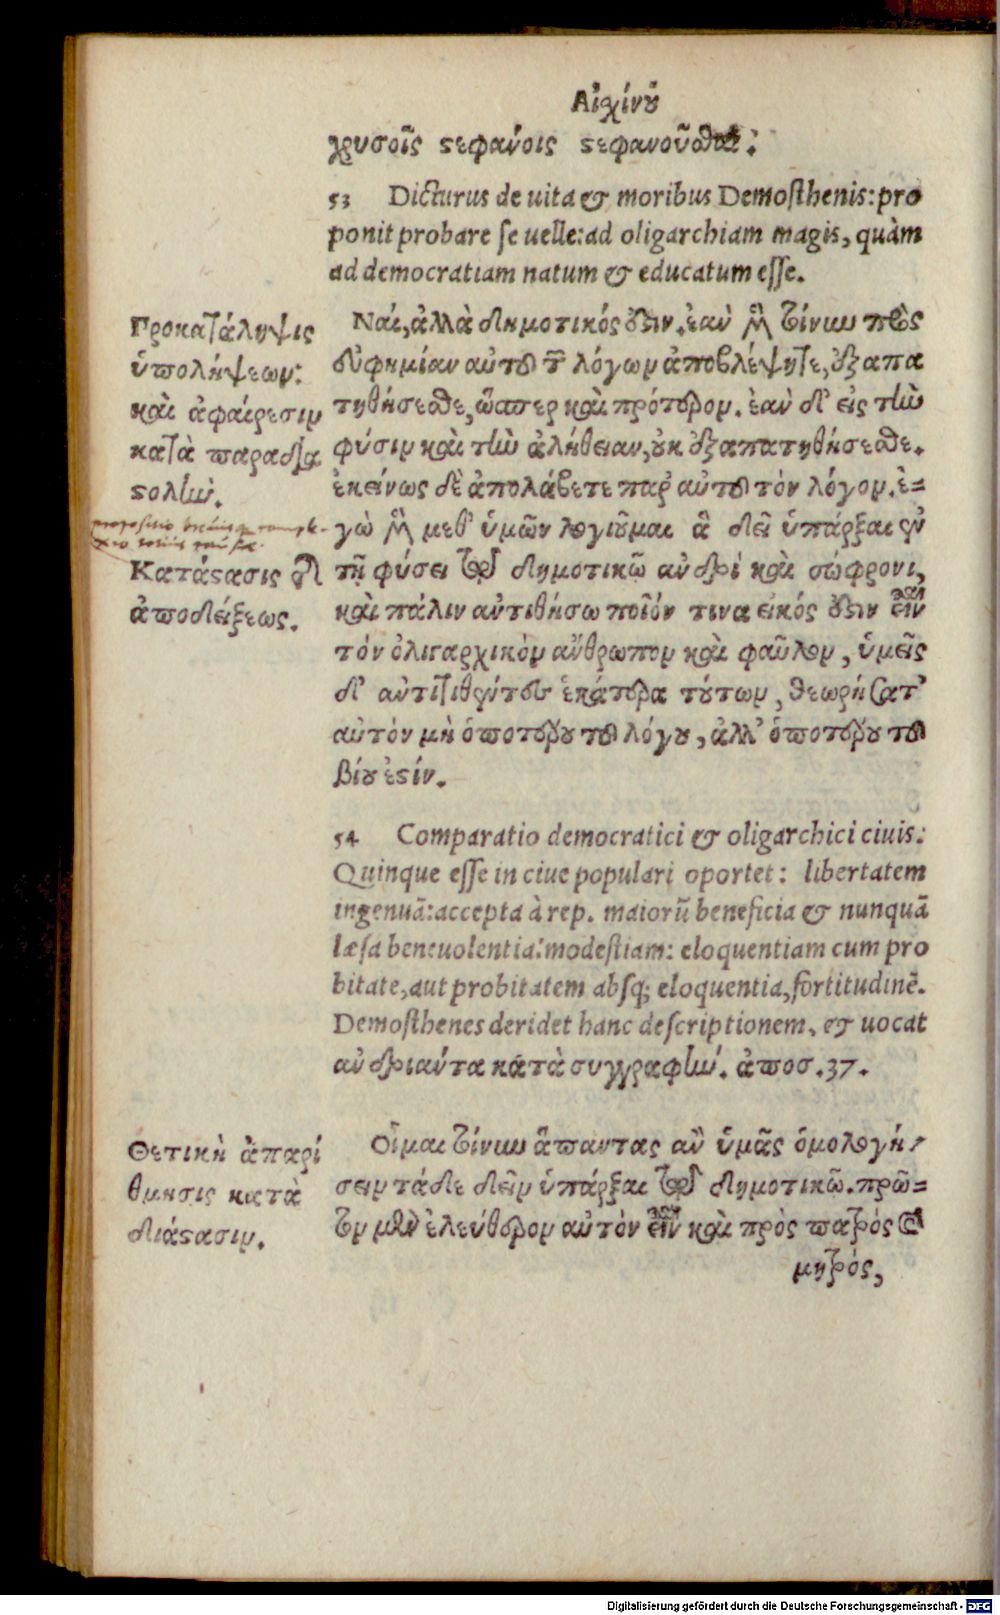 Αἰσχίνου
χρυσοῖς στεφάνοις στεφανοῦσθαι;
53 Dicturus de uita & moribus Demosthenis: pro
ponit probare se uelle: ad oligarchiam magis, quàm
ad democratiam natum & educatum esse.
Προκατάληψις
ὑπολήψεων:
καὶ ἀφαίρεσιν
κατὰ παραδια
στολὴν.
Κατάστασις τῆς
ἀποδείξεως.
Ναὶ, ἀλλὰ δημοτικός ἐστιν. ἐὰν μὲν τοίνυν πρὸς
εὐφημίαν αὐτοῦ τῶν λόγων ἀποβλέψητε, ἐξαπα
τηθήσεσθε, ὥσπερ καὶ πρότερον. ἐὰν δ' εἰς τὴν
φύσιν καὶ τὴν ἀλήθειαν, οὐκ ἐξαπατηθήσεσθε.
ἐκείνως δὲ ἀπολάβετε παρ' αὐτοῦ τὸν λόγον. ἐ=
γὼ μὲν μεθ' ὑμῶν λογιοῦμαι ἃ δεῖ ὑπάρξαι ἐν
τῇ φύσει τῷ δημοτικῷ ἀνδρὶ καὶ σώφρονι,
καὶ πάλιν ἀντιθήσω ποῖόν τινα εἰκός ἐστιν εἶναι
τὸν ὀλιγαρχικὸν ἄνθρωπον καὶ φαῦλον, ὑμεῖς
δ' ἀντιτιθέντες ἑκάτερα τούτων, θεωρήσατ'
αὐτὸν μὴ ὁποτέρου τοῦ λόγου, ἀλλ' ὁποτέρου τοῦ
βίου ἐστίν.
54 Comparatio democratici & oligarchici ciuis:
Quinque esse in ciue populari oportet: libertatem
ingenuã: accepta à rep. maiorũ beneficia & nunquã
læsa beneuolentia: modestiam: eloquentiam cum pro
bitate, aut probitatem absq; eloquentia, fortitudinẽ.
Demosthenes deridet hanc descriptionem, & uocat
ἀνδριάντα κατὰ συγγραφὴν. ἀποσ. 37.
Θετικὴ ἀπαρί
θμησις κατὰ
διάστασιν.
Οἶμαι τοίνυν ἅπαντας ἂν ὑμᾶς ὁμολογή-
σειν τάδε δεῖν ὑπάρξαι τῷ δημοτικῷ. πρῶ=
τον μὲν ἐλεύθερον αὐτὸν εἶναι καὶ πρὸς πατρὸς καὶ
μητρός,
Digitalisierung gefördert durch die Deutsche Forschungsgemeinschaft - DFG